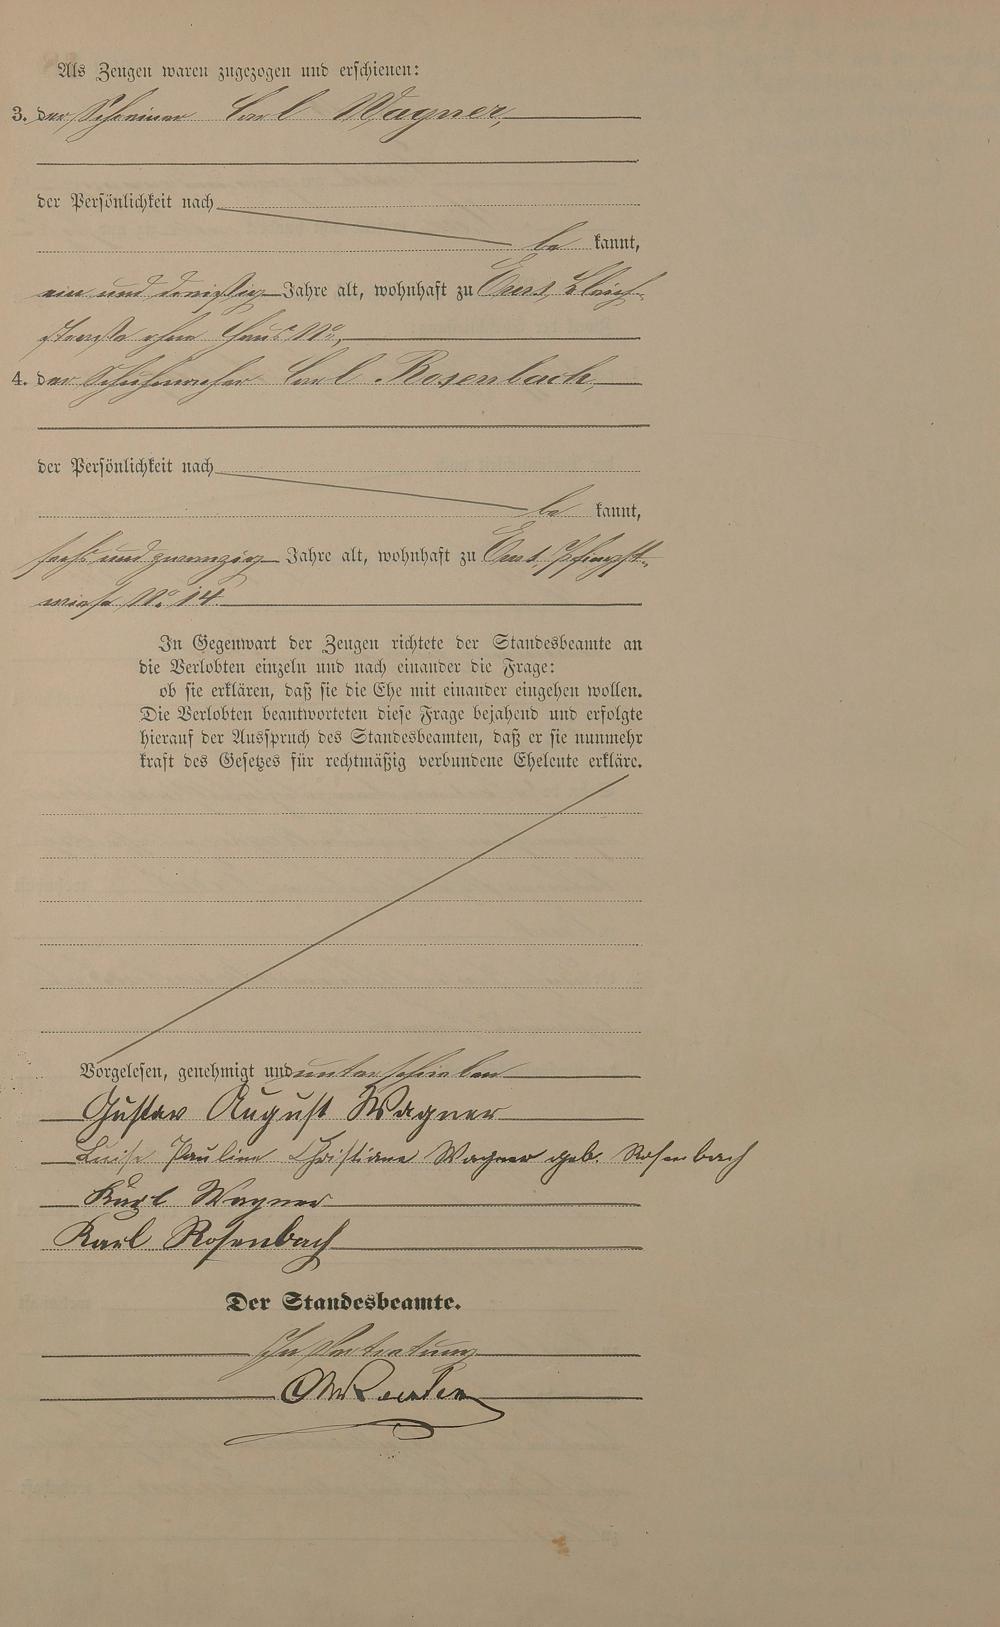 Als Zeugen waren zugezogen und erschienen:
3. der Schreiner Carl Wagner,
der Persönlichkeit nach
be kannt,
ein und dreißig Jahre alt, wohnhaft zu Ems, Bleich-
straße ohne Haus No,
4. der Schuhmacher Carl Rosenbach,
der Persönlichkeit nach
be kannt,
sechs und zwanzig Jahre alt, wohnhaft zu Ems, Pfingst-
wiese No. 14.
In Gegenwart der Zeugen richtete der Standesbeamte an
die Verlobten einzeln und nach einander die Frage:
ob sie erklären, daß sie die Ehe mit einander eingehen wollen.
Die Verlobten beantworteten diese Frage bejahend und erfolgte
hierauf der Ausspruch des Standesbeamten, daß er sie nunmehr
kraft des Gesetzes für rechtmäßig verbundene Eheleute erkläre.
Vorgelesen, genehmigt und unterschrieben
Gustav August Wagner
Luise Pauline Christiane Wagner geb. Rosenbach
Karl Wagner
Karl Rosenbach
Der Standesbeamte.
In Vertretung